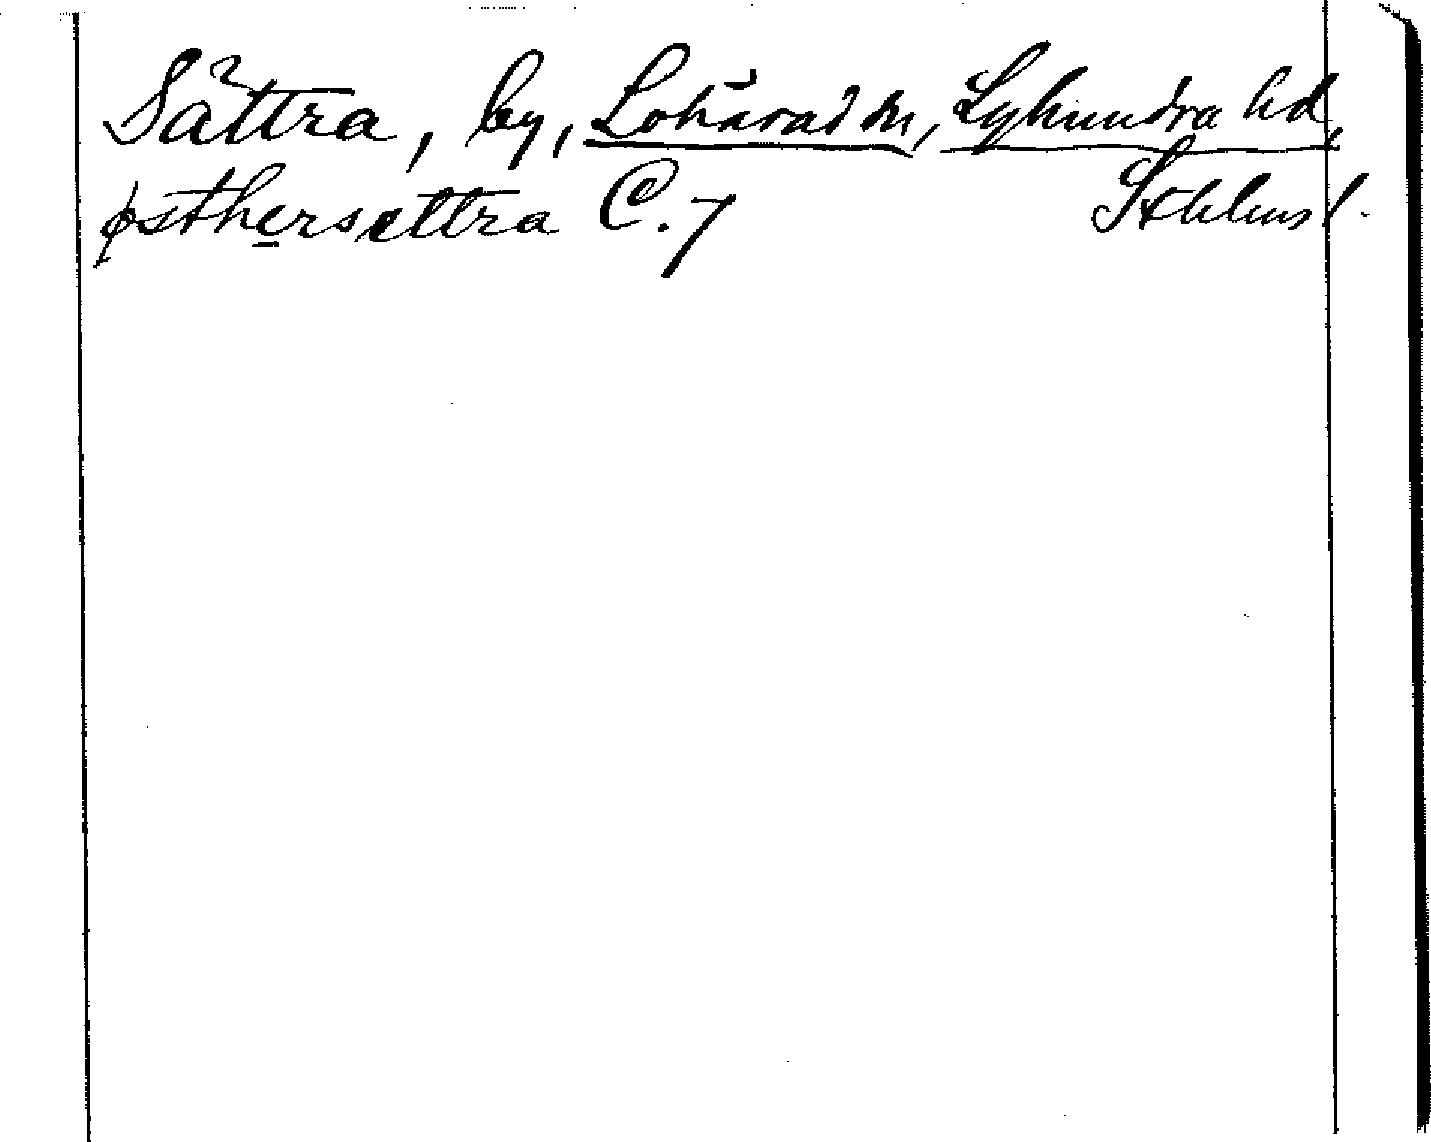 Sättra, by, Lohärad sn, Lyhundra hd,
østhersettra C. 7 Sthlms l.